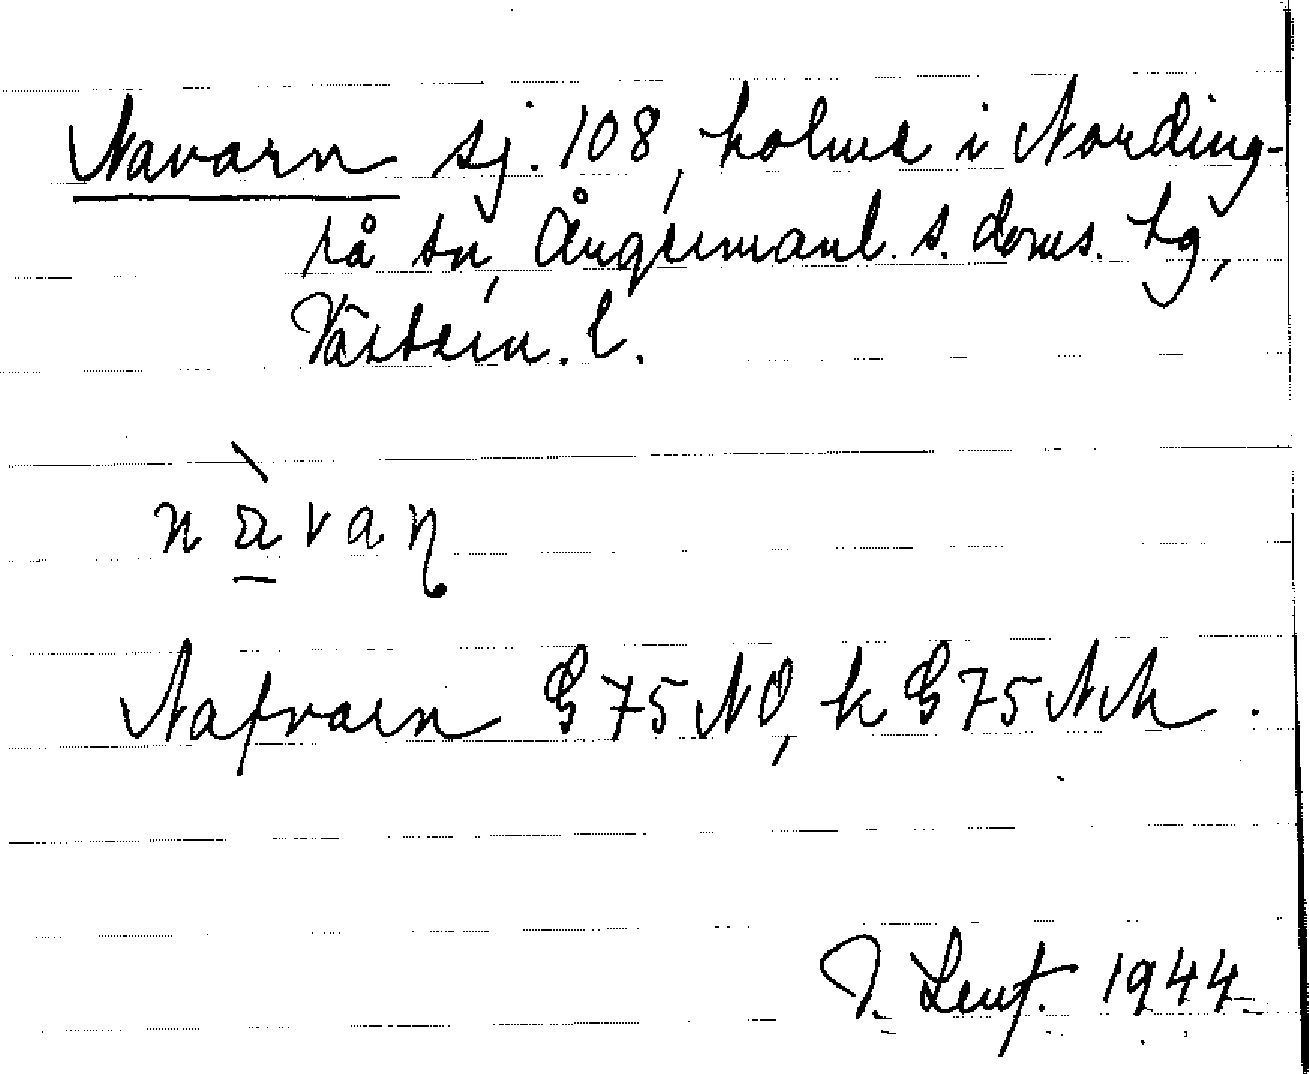 Navarn sj. 108, holme i Nording-
rå sn, Ångermanl. s. doms. hg,
Västern. l.
nàvaɳ
Nafvarn G 75 NO, k G 75
1944